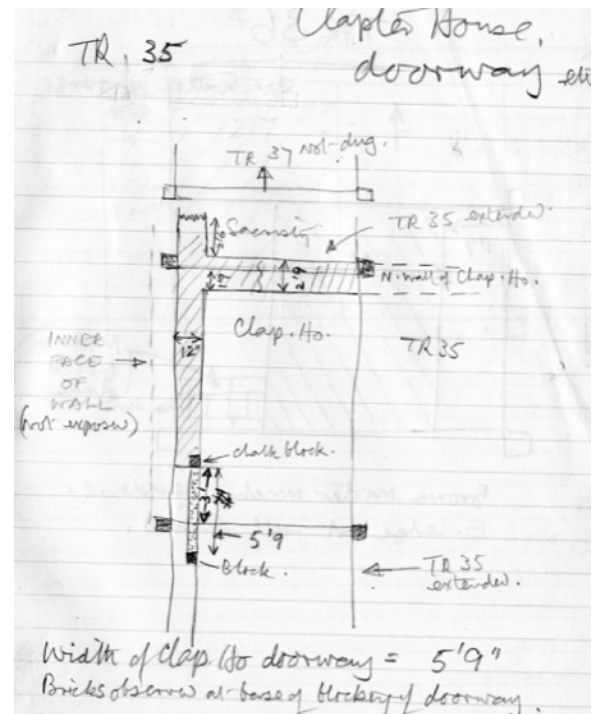 TR. 35
Chapter House,
doorway etc
TR 37 Not-dug.
Sacristy
TR 35 extended.
2'9
N. wall of Chap. Ho.
Clap. Ho.
TR 35
INNER
FACE
OF
WALL
(not exposed)
12"
chalk block.
3'
5'9
Block.
TR 35
extended.
Width of Clap Ho doorway = 5'9"
Bricks observed at base of blocking of doorway.